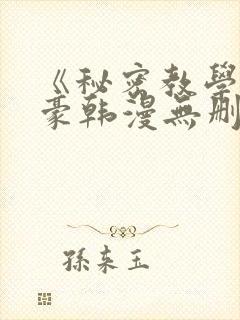 《秘密教學
豪韩漫無删
孫来玉